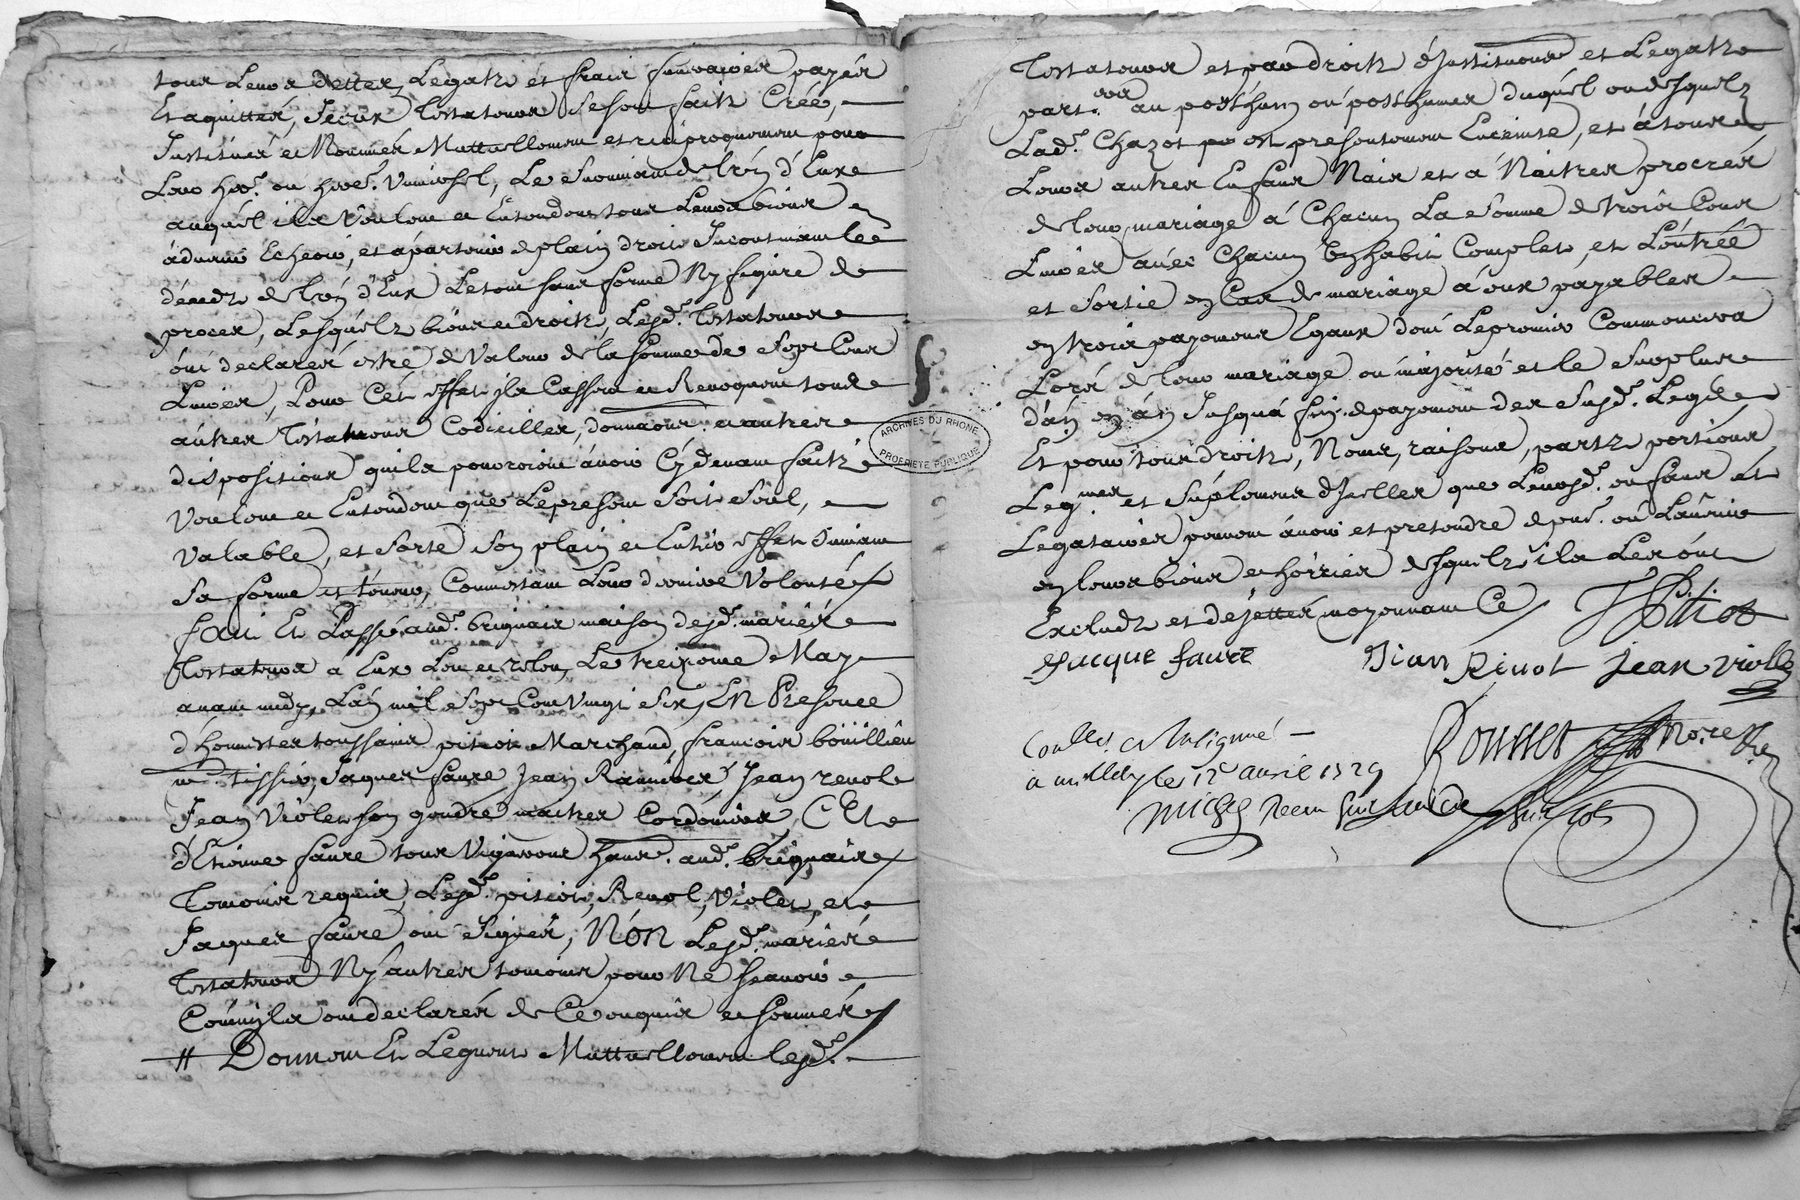 tous Leurs dettes, Legatz et frais funeraires payér
Et aquittés, Iceux Testateurs se sont faitz Créé,
Instituéz et Nommés Mutuellement et reciproquement pour
Leur her. ou here. Universel, Le survivant de l'un d'Eux
auquel ils Veulent et Entendent tous Leurs biens
advenir Echeoir, et apartenir de plain droit Incontinant le
décedz de l'un d'Eux Le tout sans forme Ny figure de
proces, Lesquelz biens et droitz, Lesd. Testateurs
ont declarés estre de Valeur de la somme de Sept Cent
Livres, Pour Cet effet ils Cassent et Revoquent tous
autres Testamens Codicilles, donnaons et autres
dispositions quils pourroient avoir Cy devant faitz
Veulent et Entendent que Le present Soit Seul,
Valable, et Sorte Son plain et Entier effet Suivant
Sa forme et teneur, Comme estant Leur derniere Volonté
fait Et Passé aud. brignais maison desd. mariés
Testateurs a Eux Leu et releu, Le treizieme May
avant midy, L'an mil Sept Cent Vingt Six, En Presence
d'honnestes toussaint pitiot Marchand, francois boüillieu
tissier, Jaques faure Jean Jean revol
Jean Violet son gendre maitres Cordoniers, Et
d'Etienne faure tous Vignerons habts. aud. brignais
Temoins requis, Lesd. pitiot, Revol, Violet, et
Jaques faure ont Signés, Nón Lesd. mariés
Testateurs Ny autres temoins pour Ne sçavoir
Comm'ils ont declarés de Ce enquis et sommés
# Donnent Et Leguent Mutuellement lesd.
Testateurs et par droitz d'Institution et Legatz
part. au posthum ou posthumes duquel ou desquelz
Lad. Chazot est presentement Enceinte, et á tous
Leurs autres Enfans Nais et á Naitres procréés
de leur mariage á Chacun La Somme de trois Cent
Livres avec Chacun Un habit Complet, et L'entrée
et Sortie en Cas de mariage á eux payables
en trois payemens Egaux dont Le premier Commencera
Lors de leur mariage ou majorité et le Surplus
d'an en án Jusquá fin de payement des Susd. Legs
Et pour tous droitz, Noms, raisons, partz portions
Leg.mes et Suplemens d'Icelles que Leursd. enfans et
Legataires peuvent ávoir et pretendre á pnt. ou L'avenir
en leurs biens et hoiries desquelz ils Les ont
Excludz et dejettés moyennant Ce / T Pitiot
Jacque faure Jean Revol Jean violle
Coullé et Insigné
a milléry le 12e avril 1729
Rousset No.re